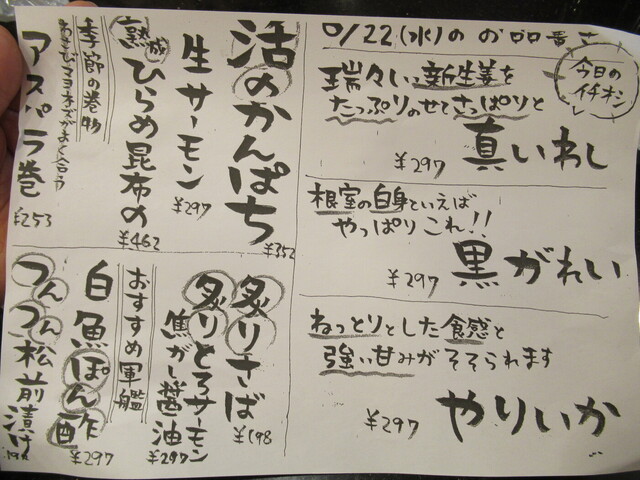 10/22(水)のお品書き
今日の
イチオシ
瑞々しい新生姜を
たっぷりのせてさっぱりと
真いわし
¥297
根室の白身といえば
やっぱりこれ!!
黒がれい
¥297
ねっとりとした食感と
強い甘みがそそられます
やりいか
¥297
活〆かんぱち
¥352
生サーモン
¥297
熟成ひらめ昆布〆
¥462
季節の巻物
わさびマヨネーズがよく合う
アスパラ巻
¥253
炙りさば
¥198
炙りとろサーモン
焦がし醤油
¥297
おすすめ軍艦
白魚ぽん酢
¥297
つんつん松前漬け